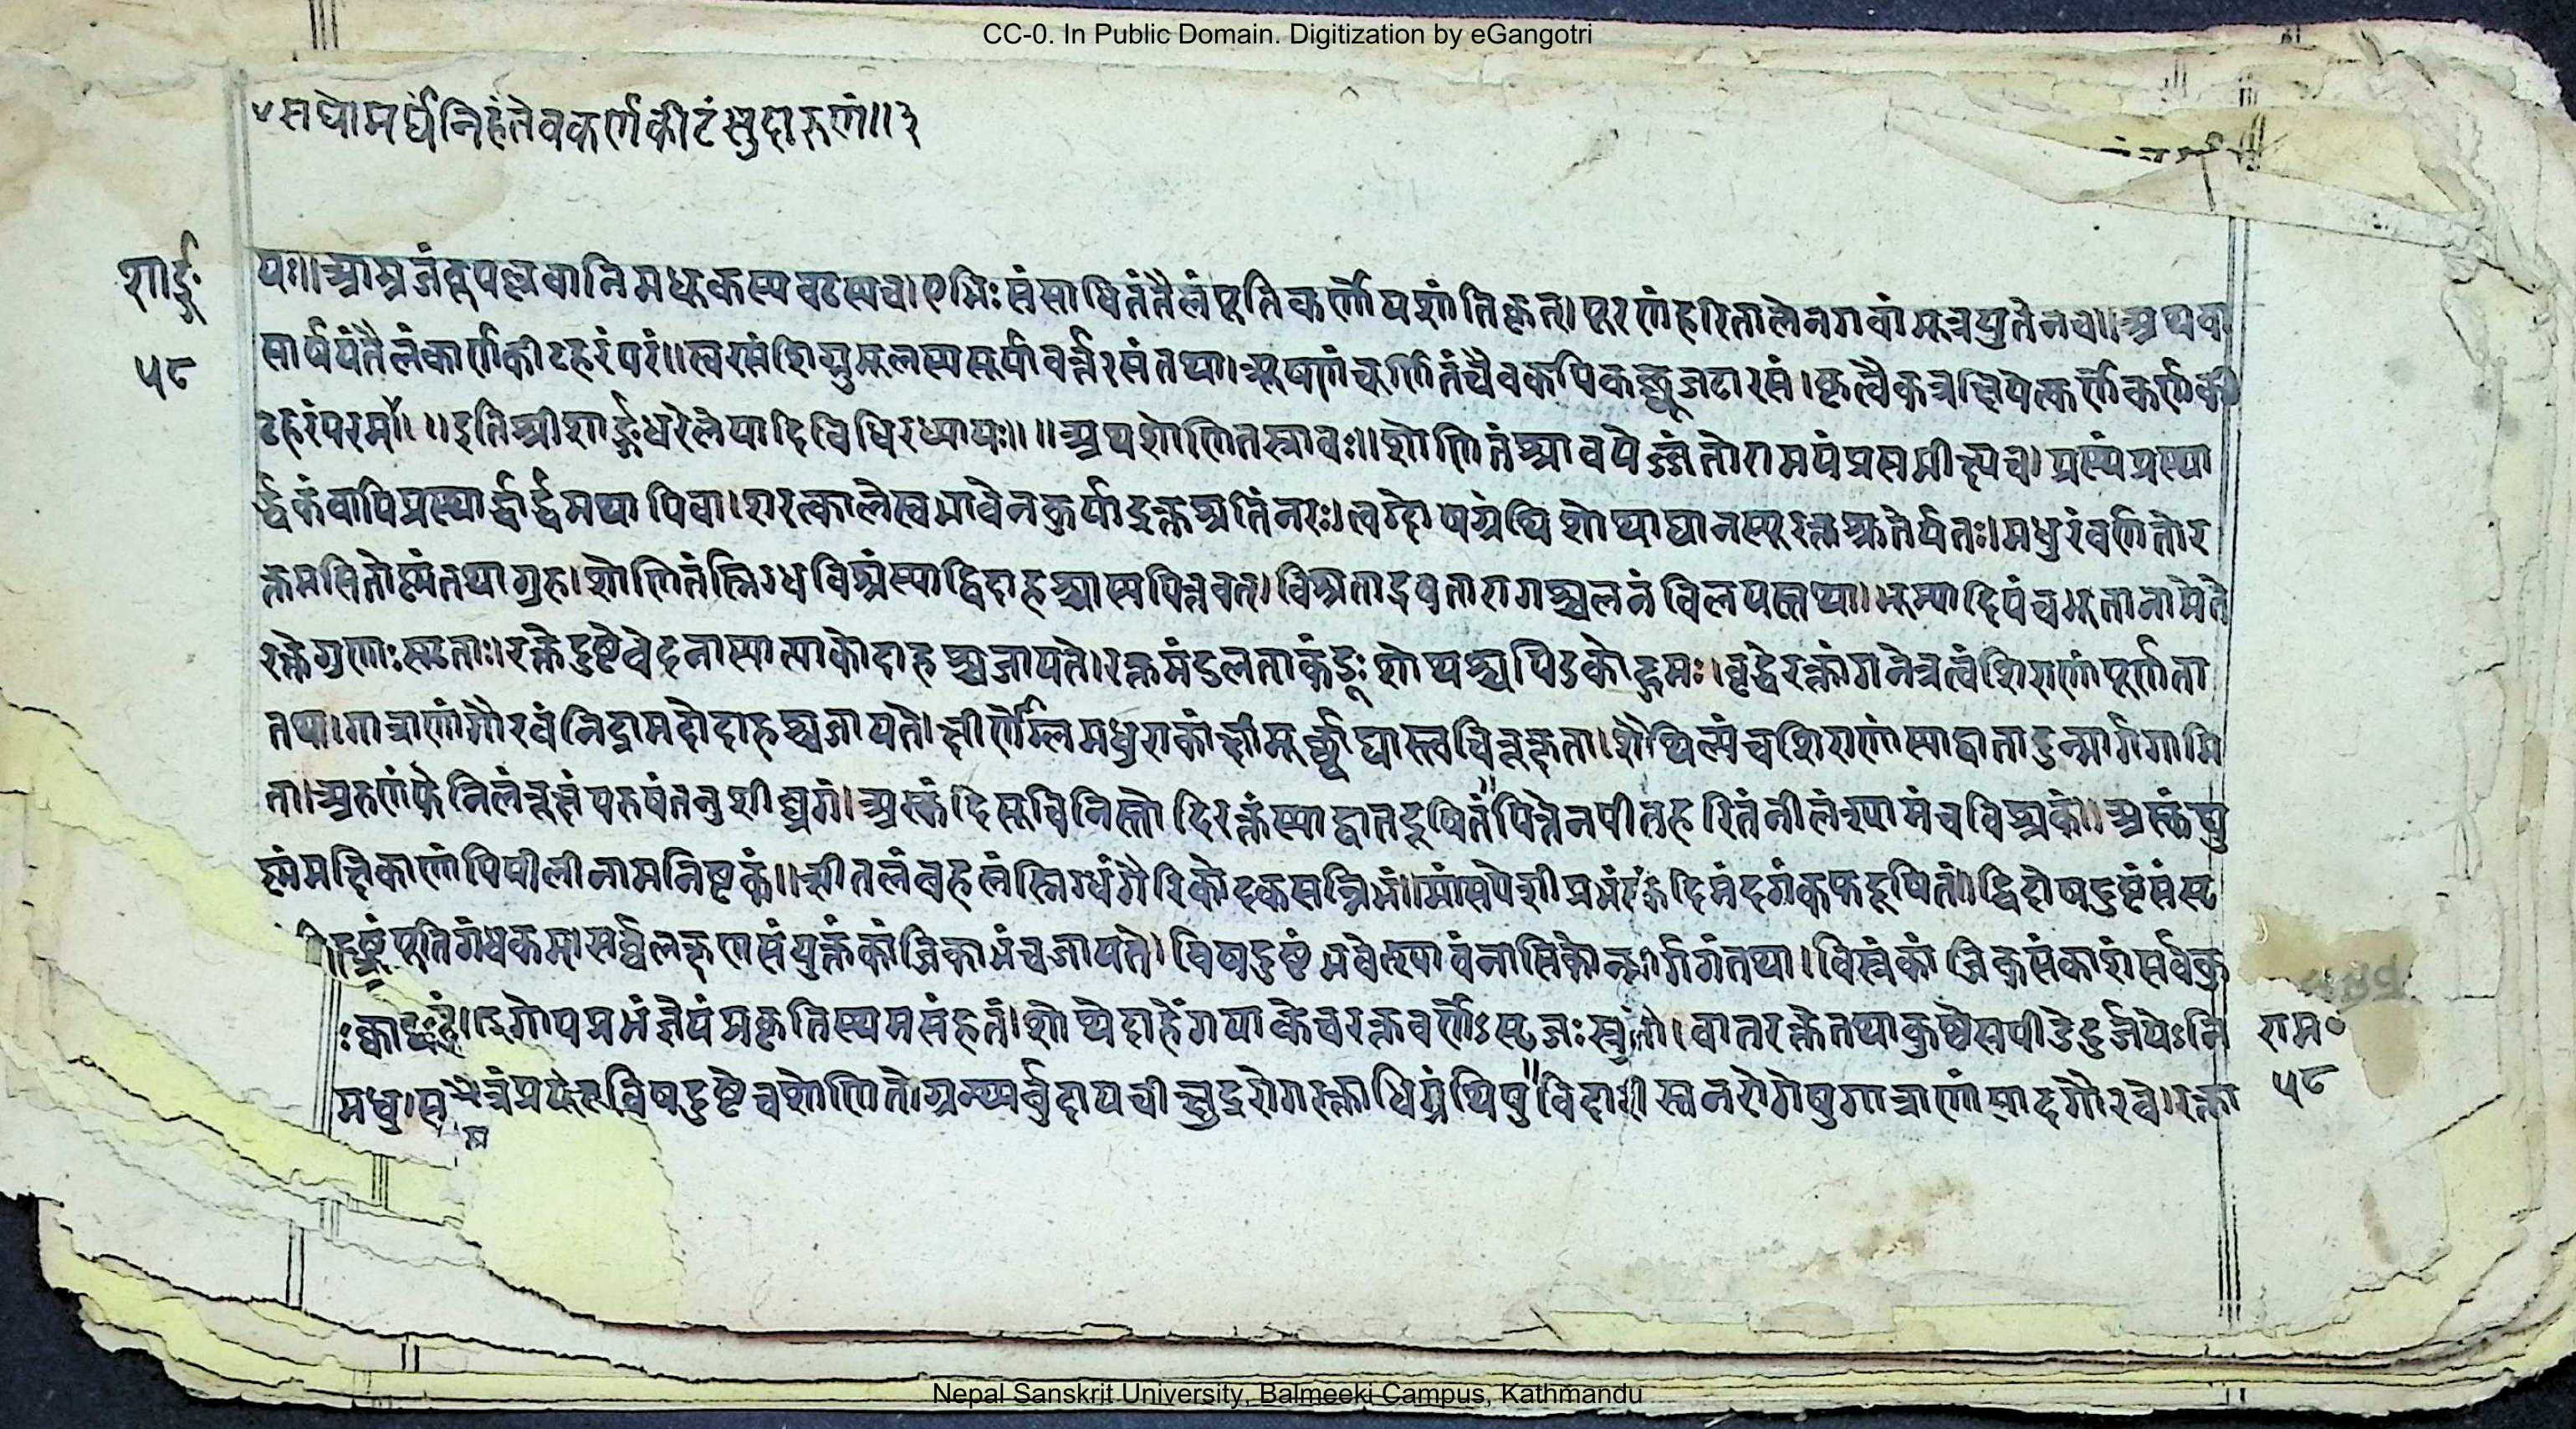 CC-0. In Public Domain. Digitization by eGangotri
सद्योमर्घनिहंतेवकर्णकीटंसुदारुणं॥३
शार्ङ्ग
५८
यः॥आम्रजंबुपल्लवानिमधूकस्यवटस्यच।एभिःसंसाधितंतैलंपूतिकर्णोपशांतिकृत्।पूरणंहरितालेनगवांमूत्रयुतेनच॥अथवा
सार्षपंतैलंकार्णकीटहरंपरं॥स्वरसंशिग्रुमूलस्यसूर्यावर्त्तरसंतथा।त्र्यूषणंचूर्णितंचैवकपिकच्छूजटारसं।कृत्वैकत्रक्षिपेत्कर्णेकर्णकी
टहरंपरम्॥॥इतिश्रीशार्ङ्गधरेलेपादिविधिरध्यायः॥॥अथशोणितस्त्रावः॥शोणितंश्रावयेज्जंतोरामयंप्रसमीक्ष्यच।प्रस्थंप्रस्था
र्द्धकंवापिप्रस्थार्द्धार्द्धमथापिवा।शरत्कालेस्वभावेनकुर्याद्रक्तश्रतिंनरः।त्वग्दोषग्रंथिशोथाद्यानस्यूरक्तश्रुतेर्यतः।मधुरंवर्णतोर
क्तमसितोष्मंतथागुरु।शोणितंस्निग्धविश्रंस्याद्विदाहश्चास्यपित्तवत्।विश्रताद्रवतारागश्चलनंविलयस्तथा।भूम्यादिपंचभूतानामेते
रक्तेगुणाःस्मृताः।रक्तेदुष्टेवेदनास्यात्पाकोदाहश्चजायते।रक्तमंडलताकंडूःशोथश्चपिडकोद्गमः।वृद्धेरक्तांगनेत्रत्वंशिराणांपूर्णता
तथा।गात्राणांगौरवंनिद्रामदोदाहश्चजायते।क्षीणेम्लमधुराकांक्षीमूर्च्छाचास्त्वचिरूक्षता।शैथिल्यंचशिराणांस्याद्वातादुन्मार्गगामि
ता।अरुणंफेनिलंरूक्षंपरुषंतनुशीघ्रगं।अस्कंदिसूचिनिस्तोदिरक्तंस्याद्वातदूषितंपित्तेनपीतहरितंनीलंश्यामंचविश्रकं॥अस्कंद्यु
ष्मंमक्षिकाणांपिपीलीनामनिष्टकं॥शीतलंबहलंस्निग्धंगैरिकोदकसन्निभं॥मांसपेशीप्रभंस्कंदिमंदगंकफदूषितं॥द्विदोषदुष्टंसंसृ
पूतिगंधकम्।सर्वलक्षणसंयुक्तंकांजिकाभंचजायते।विषदुष्टंभवेत्श्यावंनासिकोन्मार्गगंतथा।विस्त्रंकांजिकसंकाशंसर्वकु
गोपप्रभंज्ञेयंप्रकृतिस्थमसंहतं।शोथेदाहेंगपाकेचरक्तवर्णेऽसृजःस्त्रुतौ।वातरक्तेतथाकुष्ठेसपीडेदुर्जयेऽनि
विषदुष्टेचशोणिते।ग्रन्थ्यर्बुदापचीक्षुद्ररोगरक्ताधिग्रंथिषुविदारीस्तनरोगेषुगात्राणांसादगौरवे।रक्ता
राम॰
५८
Nepal Sanskrit University, Balmeeki Campus, Kathmandu